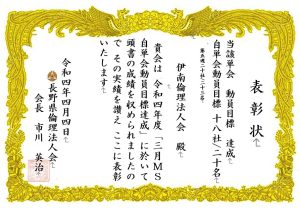 表彰状
当該単会 動員目標 達成
自単会動員目標 十八社/二十名
第五週/二十社/二十三名
伊南倫理法人会 殿
貴会は 令和四年度「三月MS
自単会動員目標達成」に於いて
頭書の成績を収められましたの
で その実績を讃え ここに表彰
いたします
令和四年四月四日
長野県倫理法人会
会長 市川 英治